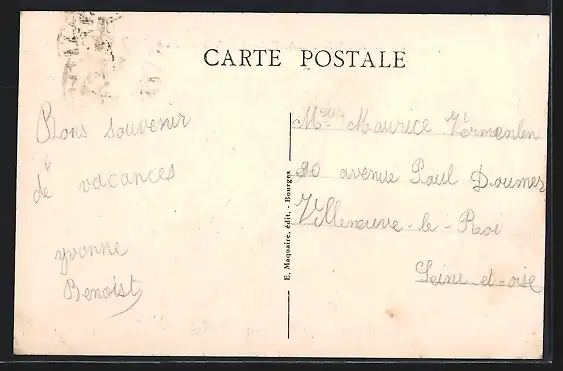 CARTE POSTALE
Bons souvenir
de vacances
yvonne
Benoist
E. Maquaire, édit. - Bourges
Meur Maurice Vermenlen
20 avenue Paul Doumer
Villeneuve-le-Roi
Seine-et-oise